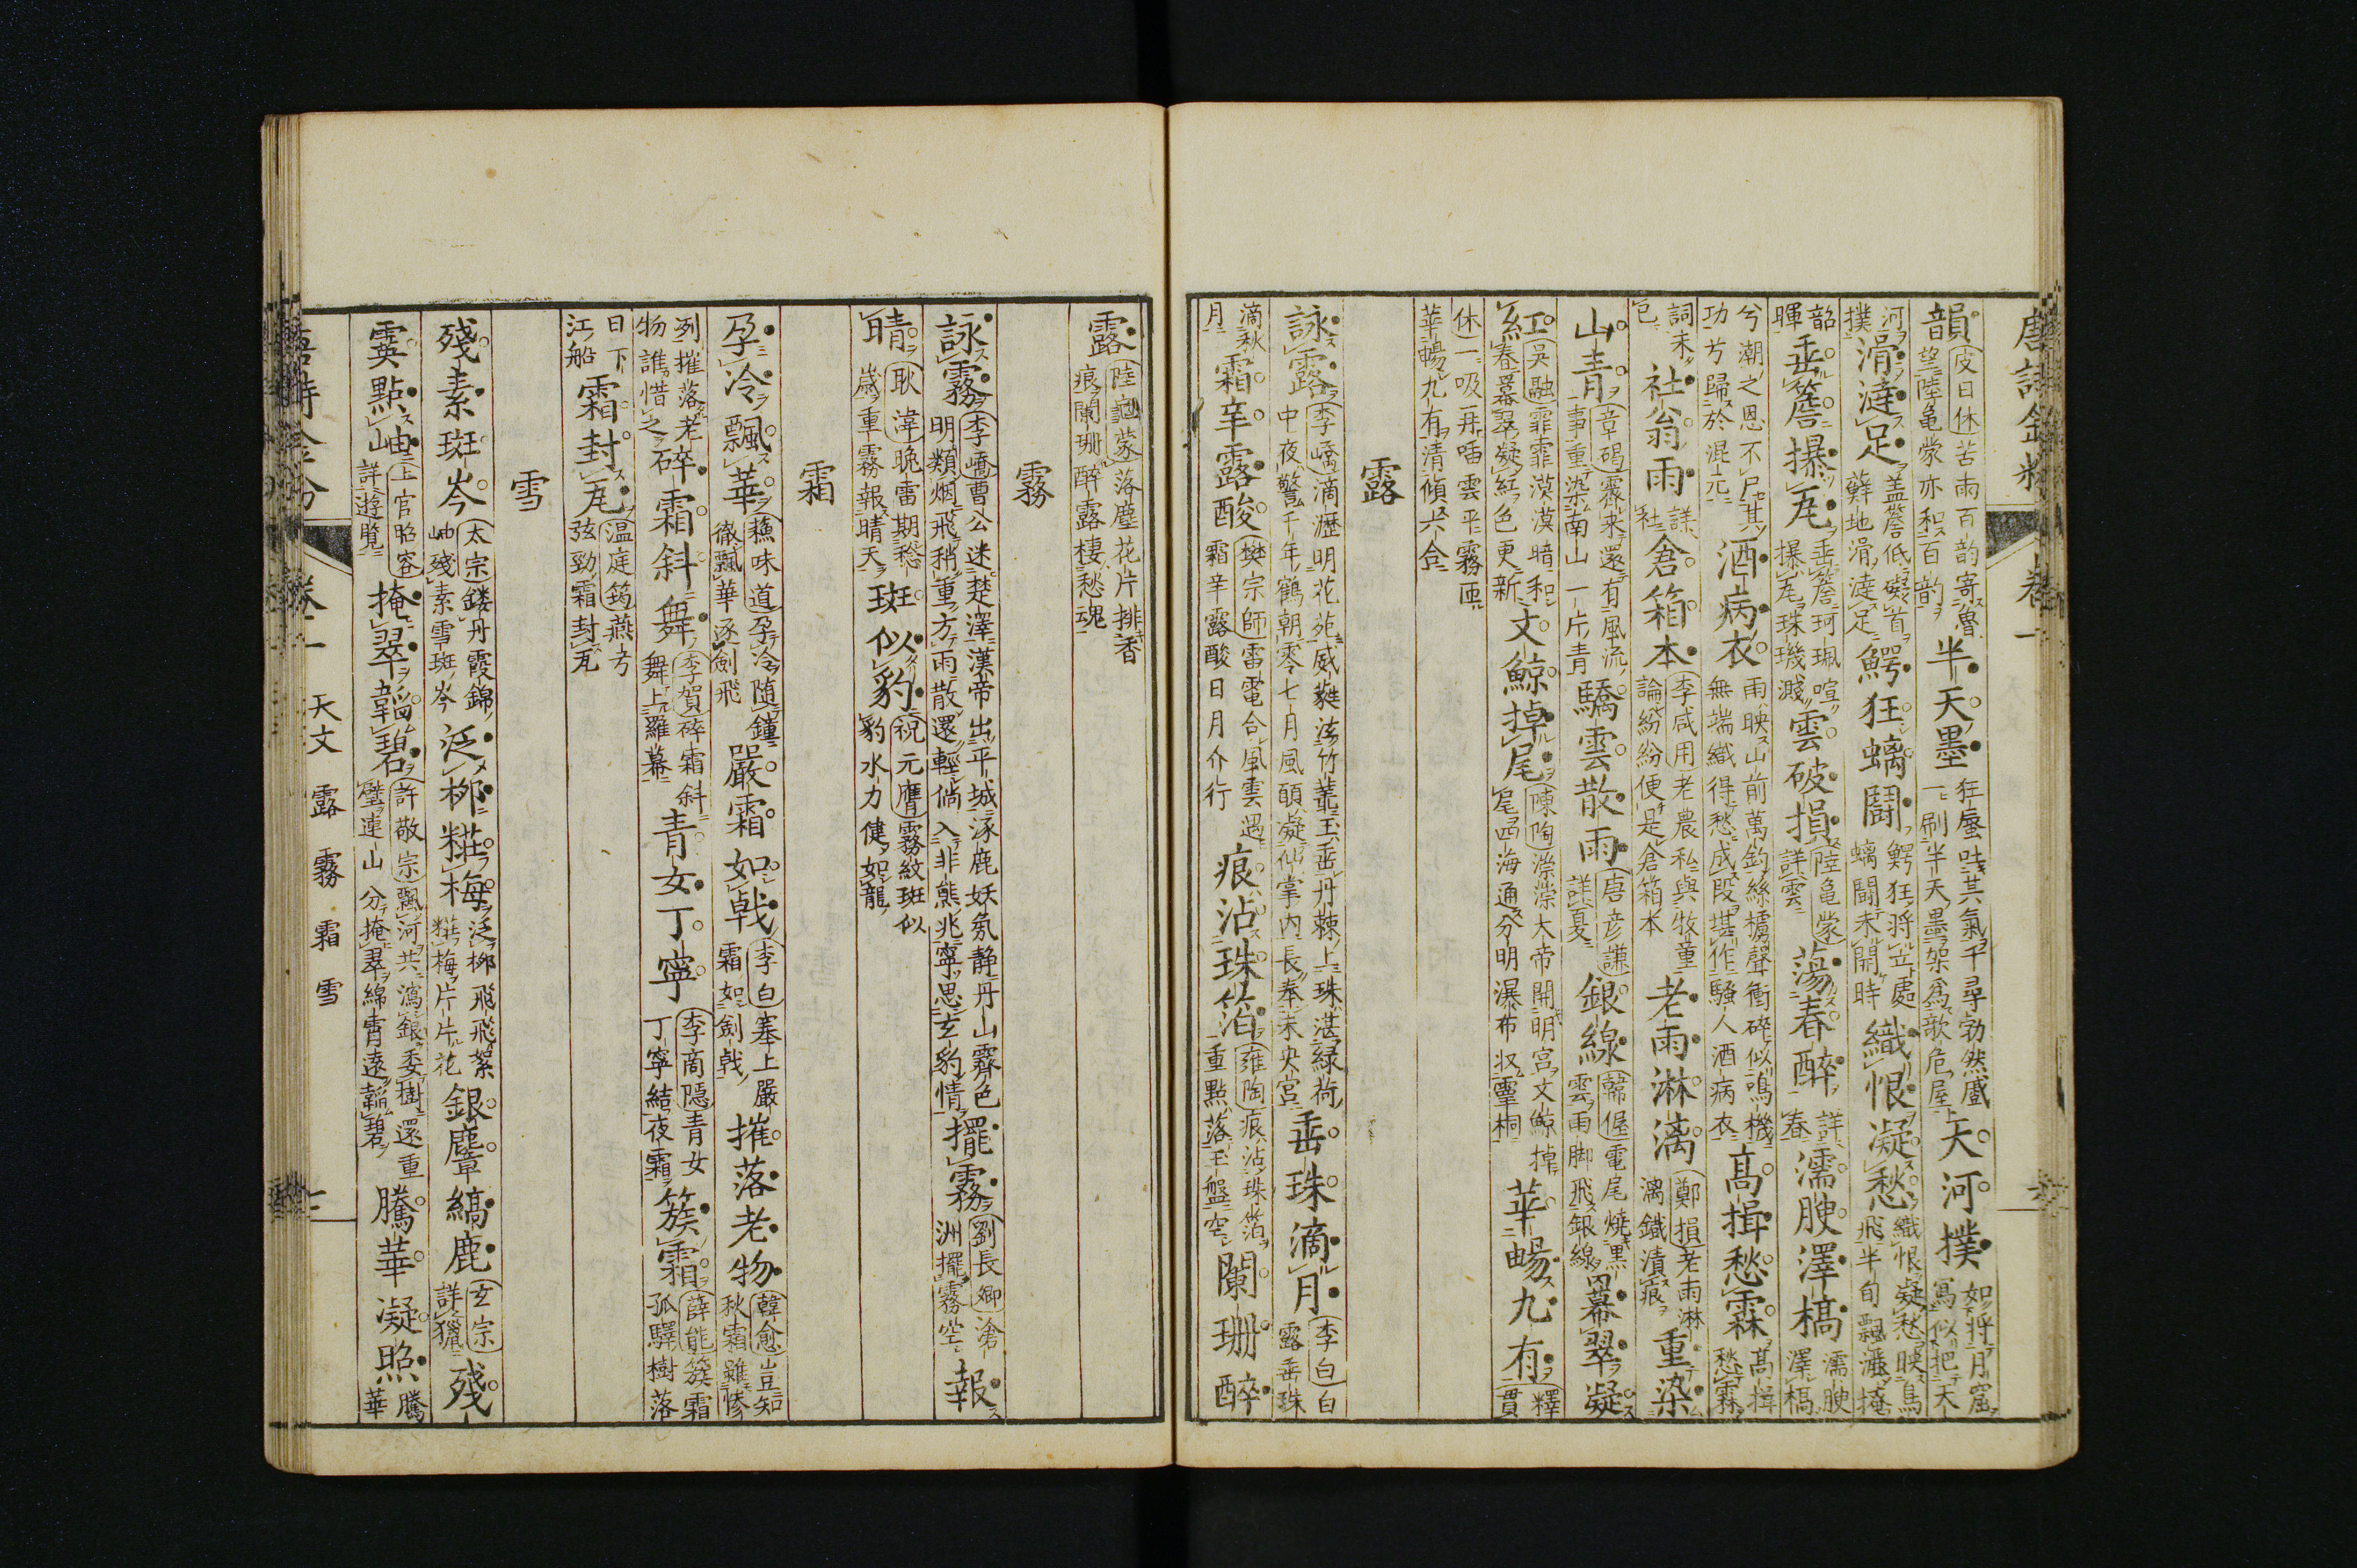 唐詩金粉 卷一
韻 皮日休 苦雨百韵寄魯望 陸龜蒙亦和百韵 半天墨 狂蜃吐其氣千尋勃然蹙一刷半天墨架為欹危屋 天河撲 如將月窟寫似把天
河撲 滑澾足 盖簷低礙首蘚地滑澾足 鰐狂螭鬭 鰐狂將立處螭鬭未開時 織恨凝愁 織恨凝愁映鳥飛半旬飄灑掩
韶暉 垂簷㩧瓦 垂簷珂珮喧㩧瓦珠璣濺 雲破損 陸龜蒙 詳雲 蕩春醉 詳春 濡腴澤槁 濡腴澤槁
兮潮之恩不尸其功兮歸於混元 酒病衣 雨映山前萬釣絲櫓聲衝碎似鳴機無端織得愁成段堪作騷人酒病衣 高揖愁霖 高揖愁霖
詞未已 社翁雨 詳社 倉箱本 李咸用 老農私與牧童論紛紛便是倉箱本 老雨淋漓 鄭損 老雨淋漓鐵漬痕 重染
山青 章碣 霖來還有風流事重染南山一片青 驕雲散雨 唐彦謙 詳夏 銀線 韓偓 電尾燒黑雲雨脚飛銀線 羃翠凝
紅 吳融 霏霏漠漠暗和春羃翠凝紅色更新 文鯨掉尾 陳陶 濴濴大帝開明宮文鯨掉尾四海通分明瀑布收雙桐 華暢九有 釋貫
休 一吸再噴雲平霧匝華暢九有清傾六合
露
詠露 李嶠 滴瀝明花苑葳蕤泫竹叢玉垂丹棘上珠湛綠荷中夜警千年鶴朝零七月風願凝仙掌內長奉未央宮 垂珠滴月 李白 白露垂珠
滴秋月 霜辛露酸 樊宗師 雷電合風雲遇霜辛露酸日月介行 痕沾珠箔 雍陶 痕沾珠箔重點落玉盤空 闌珊醉
露 陸龜蒙 落塵花片排香痕闌珊醉露棲愁魂
霧
詠霧 李嶠 曹公迷楚澤漢帝出平城涿鹿妖氛静丹山霽色明類烟飛稍重方雨散還輕倘入非熊兆寧思玄豹情 擺霧 劉長卿 滄洲擺霧空 報
晴 耿湋 晚雷期愁歲重霧報晴天 斑似豹 祝元膺 霧紋斑似豹水力健如龍
霜
孕冷飄華 蘓味道 孕冷隨鐘徹飄華逐劍飛 嚴霜如戟 李白 塞上嚴霜如劍戟 摧落老物 韓愈 豈知秋霜雖慘
冽摧落老物誰惜之 碎霜斜舞 李賀 碎霜斜舞上羅幕 青女丁寧 李商隱 青女丁寧結夜霜 簇霜 薛能 簇霜孤驛樹落
日下江船 霜封瓦 溫庭筠 燕弓弦勁霜封瓦
雪
殘素斑岑 太宗 鏤丹霞錦岫殘素雪斑岑 泛柳糚梅 泛柳飛飛絮糚梅片片花 銀麞縞鹿 玄宗 詳獵 殘
霙點岫 上官昭容 詳遊覽 掩翠韜碧 許敬宗 飄河共瀉銀委樹還重璧連山分掩翠綿霄遠韜碧 騰華凝照 騰華
卷一 天文 露 霧 霜 雪